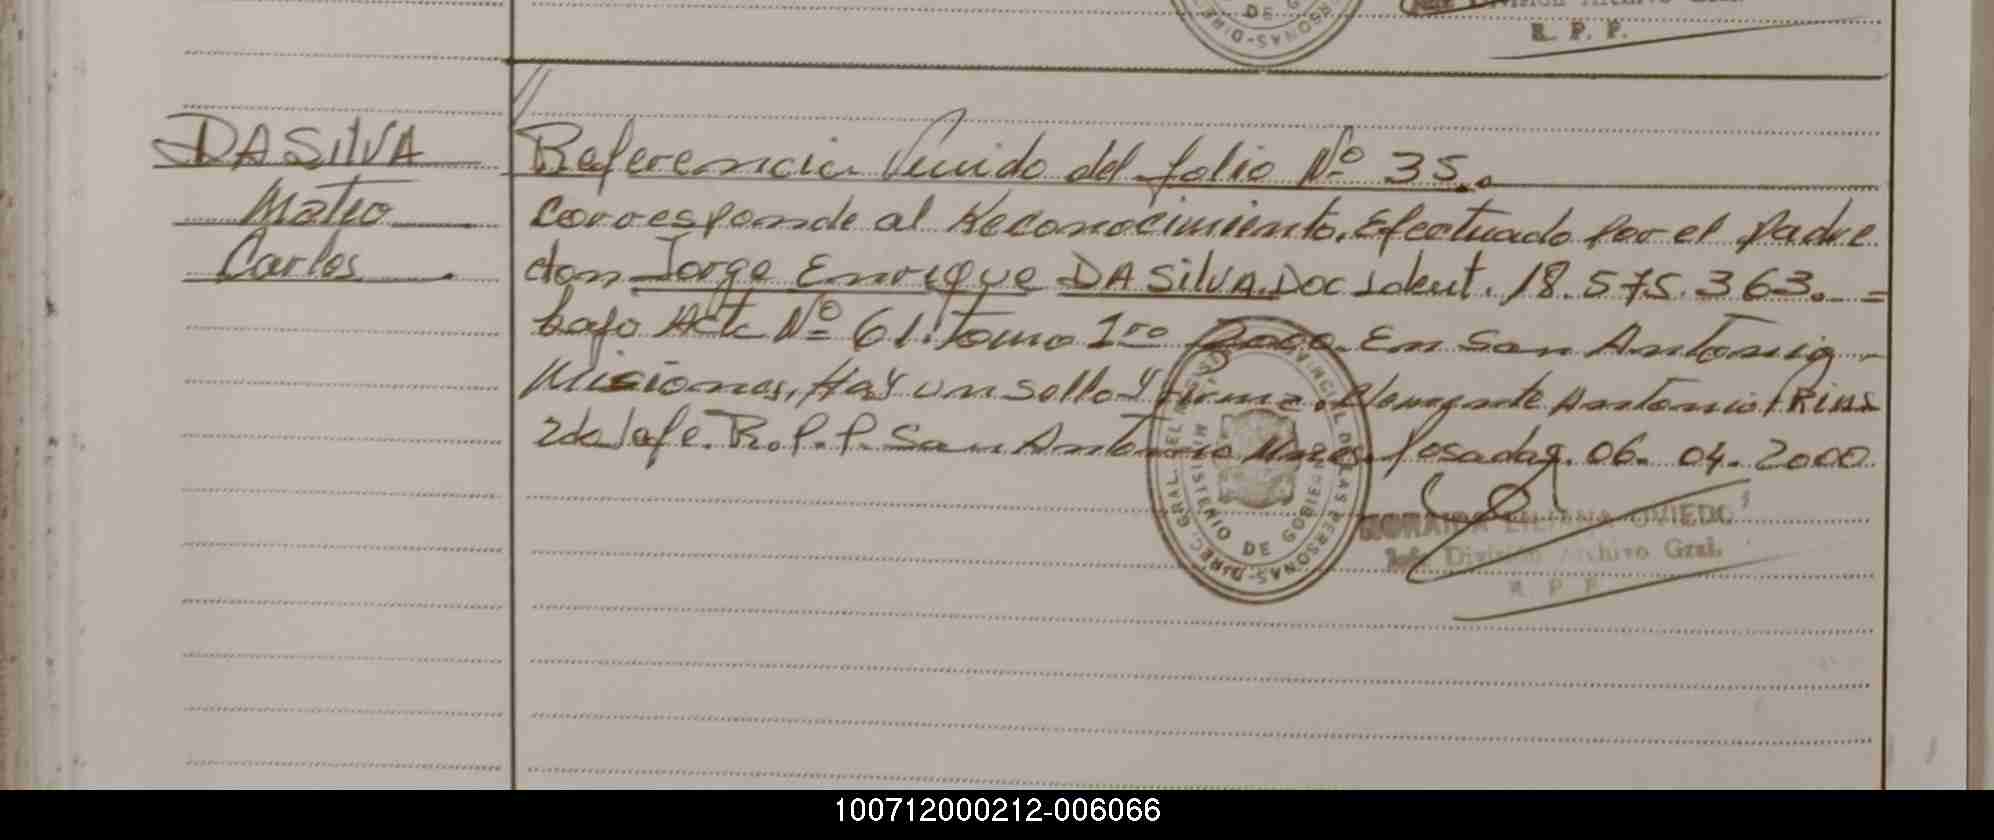 DE
R. P. P.
DA SILVA
Mateo
Carlos
Referencia Venido del folio Nº 35..
Corresponde al Reconocimiento. Efectuado por el padre
don Jorge Enrique DA SILVA. Doc Ident. 18.575.363. =
bajo Acta Nº 61. tomo 1ro 2000. En San Antonio
Misiones, Hay un sello y firma. Antonio Rius
2da Jefe. R.P.P. San Antonio Mnes. Posadas. 06. 04. 2000
DIREC. GRAL. DEL REG. PROVINCIAL DE LAS PERSONAS
MINISTERIO DE GOBIERNO
LILIANA OVIEDO
Jefe División Archivo Gral.
R P P
100712000212-006066